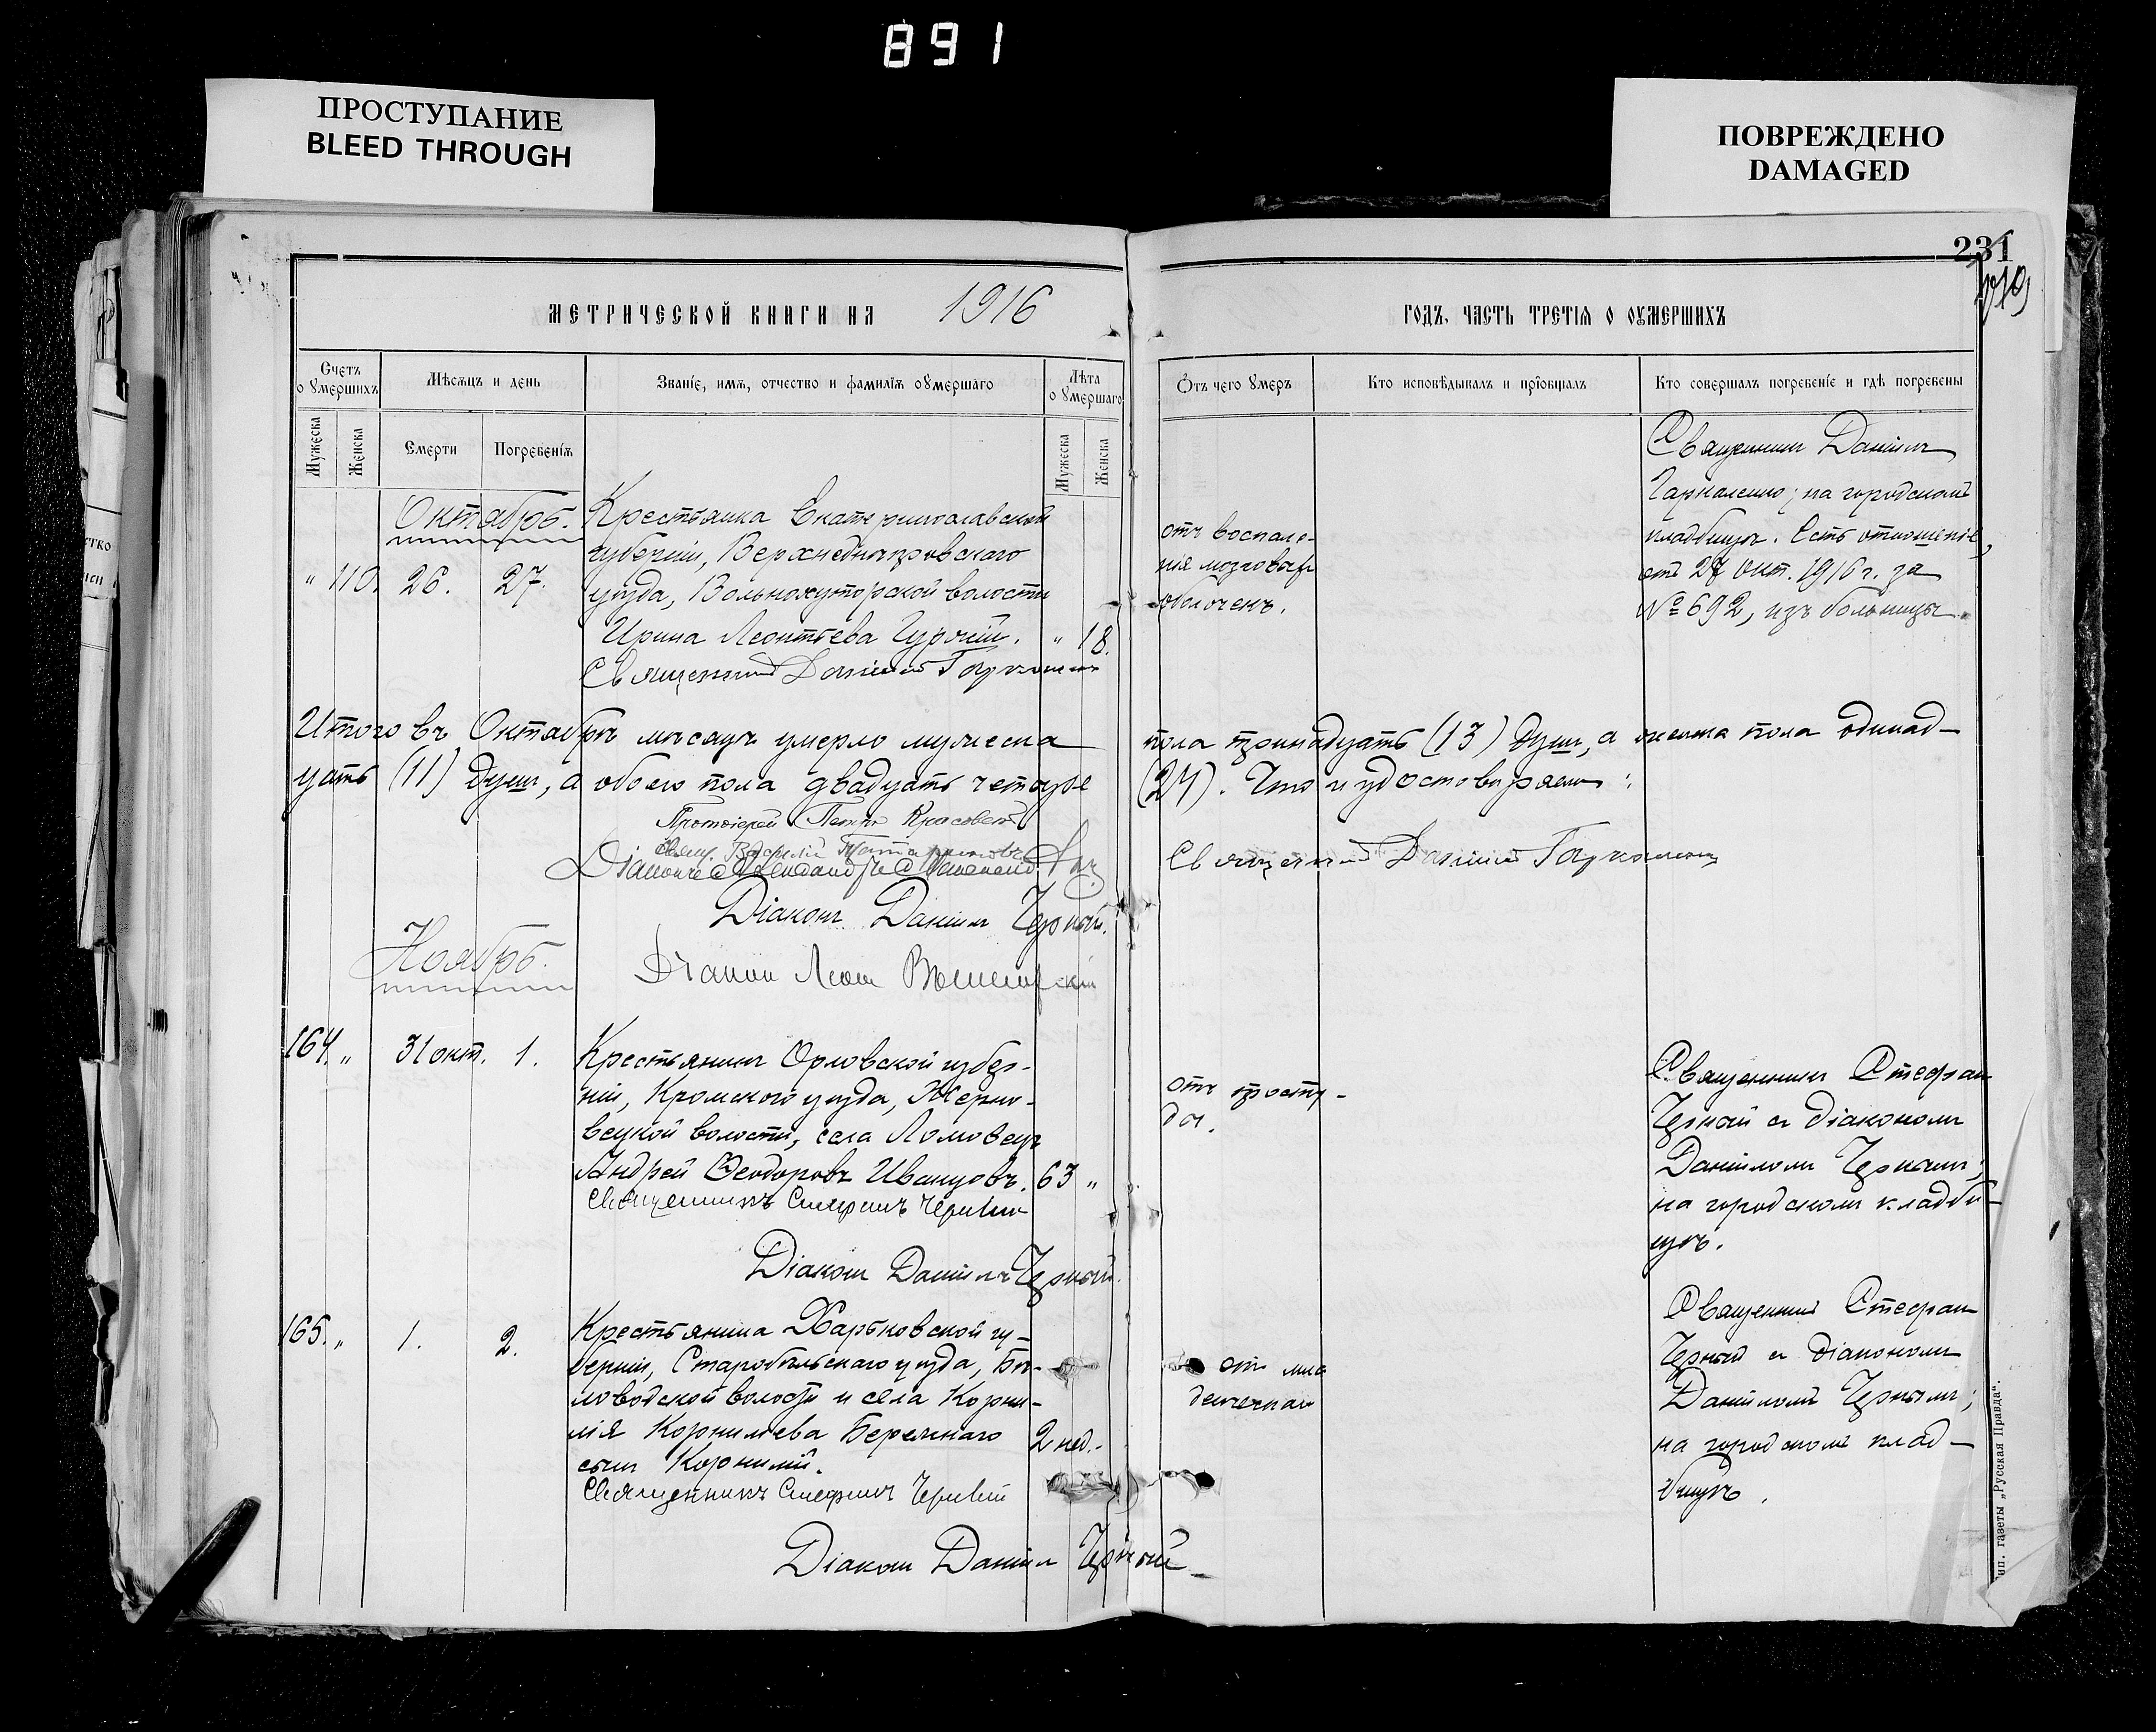 891
ПРОСТУПАНИЕ
BLEED THROUGH
ПОВРЕЖДЕНО
DAMAGED
231
МЕТРИЧЕСКОЙ КНИГИ НА 1916
ГОДЪ, ЧАСТЬ ТРЕТІЯ О ОУМЕРШИХЪ
Счетъ о умершихъ
Мѣсяцъ и день
Званіе, имя, отчество и фамилія оумершаго
Лѣта о умершаго
Отъ чего умеръ
Кто исповѣдывалъ и пріобщалъ
Кто совершалъ погребеніе и гдѣ погребены
Мужеска
Женска
Смерти
Погребенія
Мужеска
Женска
Октябрь.
" 110. 26. 27.
Крестьянка Екатеринославской
губерніи, Верхнеднѣпровскаго
уѣзда, Вольнохуторской волости
Ирина Леонтьева
" 18.
Священникъ Даніилъ
отъ воспале-
нія мозговыхъ
оболочекъ.
Священникъ Даніилъ
на городскомъ
кладбищѣ. Есть отношеніе,
отъ 27 Окт. 1916 г. за
№ 692, изъ больницы.
Итого въ Октябрѣ мѣсяцѣ умерло мужеска
пола тринадцать (13) душъ, а женска пола одинад-
цать (11) душъ, а обоего пола двадцать четыре
(24). Что и удостовѣряемъ:
Протоіерей Петръ
Свящ. Василій
Священникъ Даніилъ
Діаконъ Даніилъ Черный.
Діаконъ
Ноябрь.
164. " 31 окт. 1.
Крестьянинъ Орловской губер-
ніи, Кромского уѣзда, Жерно-
вецкой волости, села Ломовецъ
Андрей Ѳеодоровъ Иванцовъ.
63 "
Священникъ Стефанъ Черный
Діаконъ Даніилъ Черный.
отъ просту-
ды.
Священникъ Стефанъ
Черный съ діакономъ
Даніиломъ Чернымъ;
на городскомъ кладби-
щѣ.
165. " 1. 2.
Крестьянина Харьковской гу-
берніи, Старобѣльскаго уѣзда, Бѣ-
ловодской волости и села Корни-
лія Корнильева Бережнаго
сынъ Корнилій.
2 нед.
Священникъ Стефанъ Черный
Діаконъ Даніилъ Черный
отъ мла
денческой
Священникъ Стефанъ
Черный съ діакономъ
Даніиломъ Чернымъ;
на городскомъ клад-
бищѣ.
Тип. газеты „Русская Правда“.